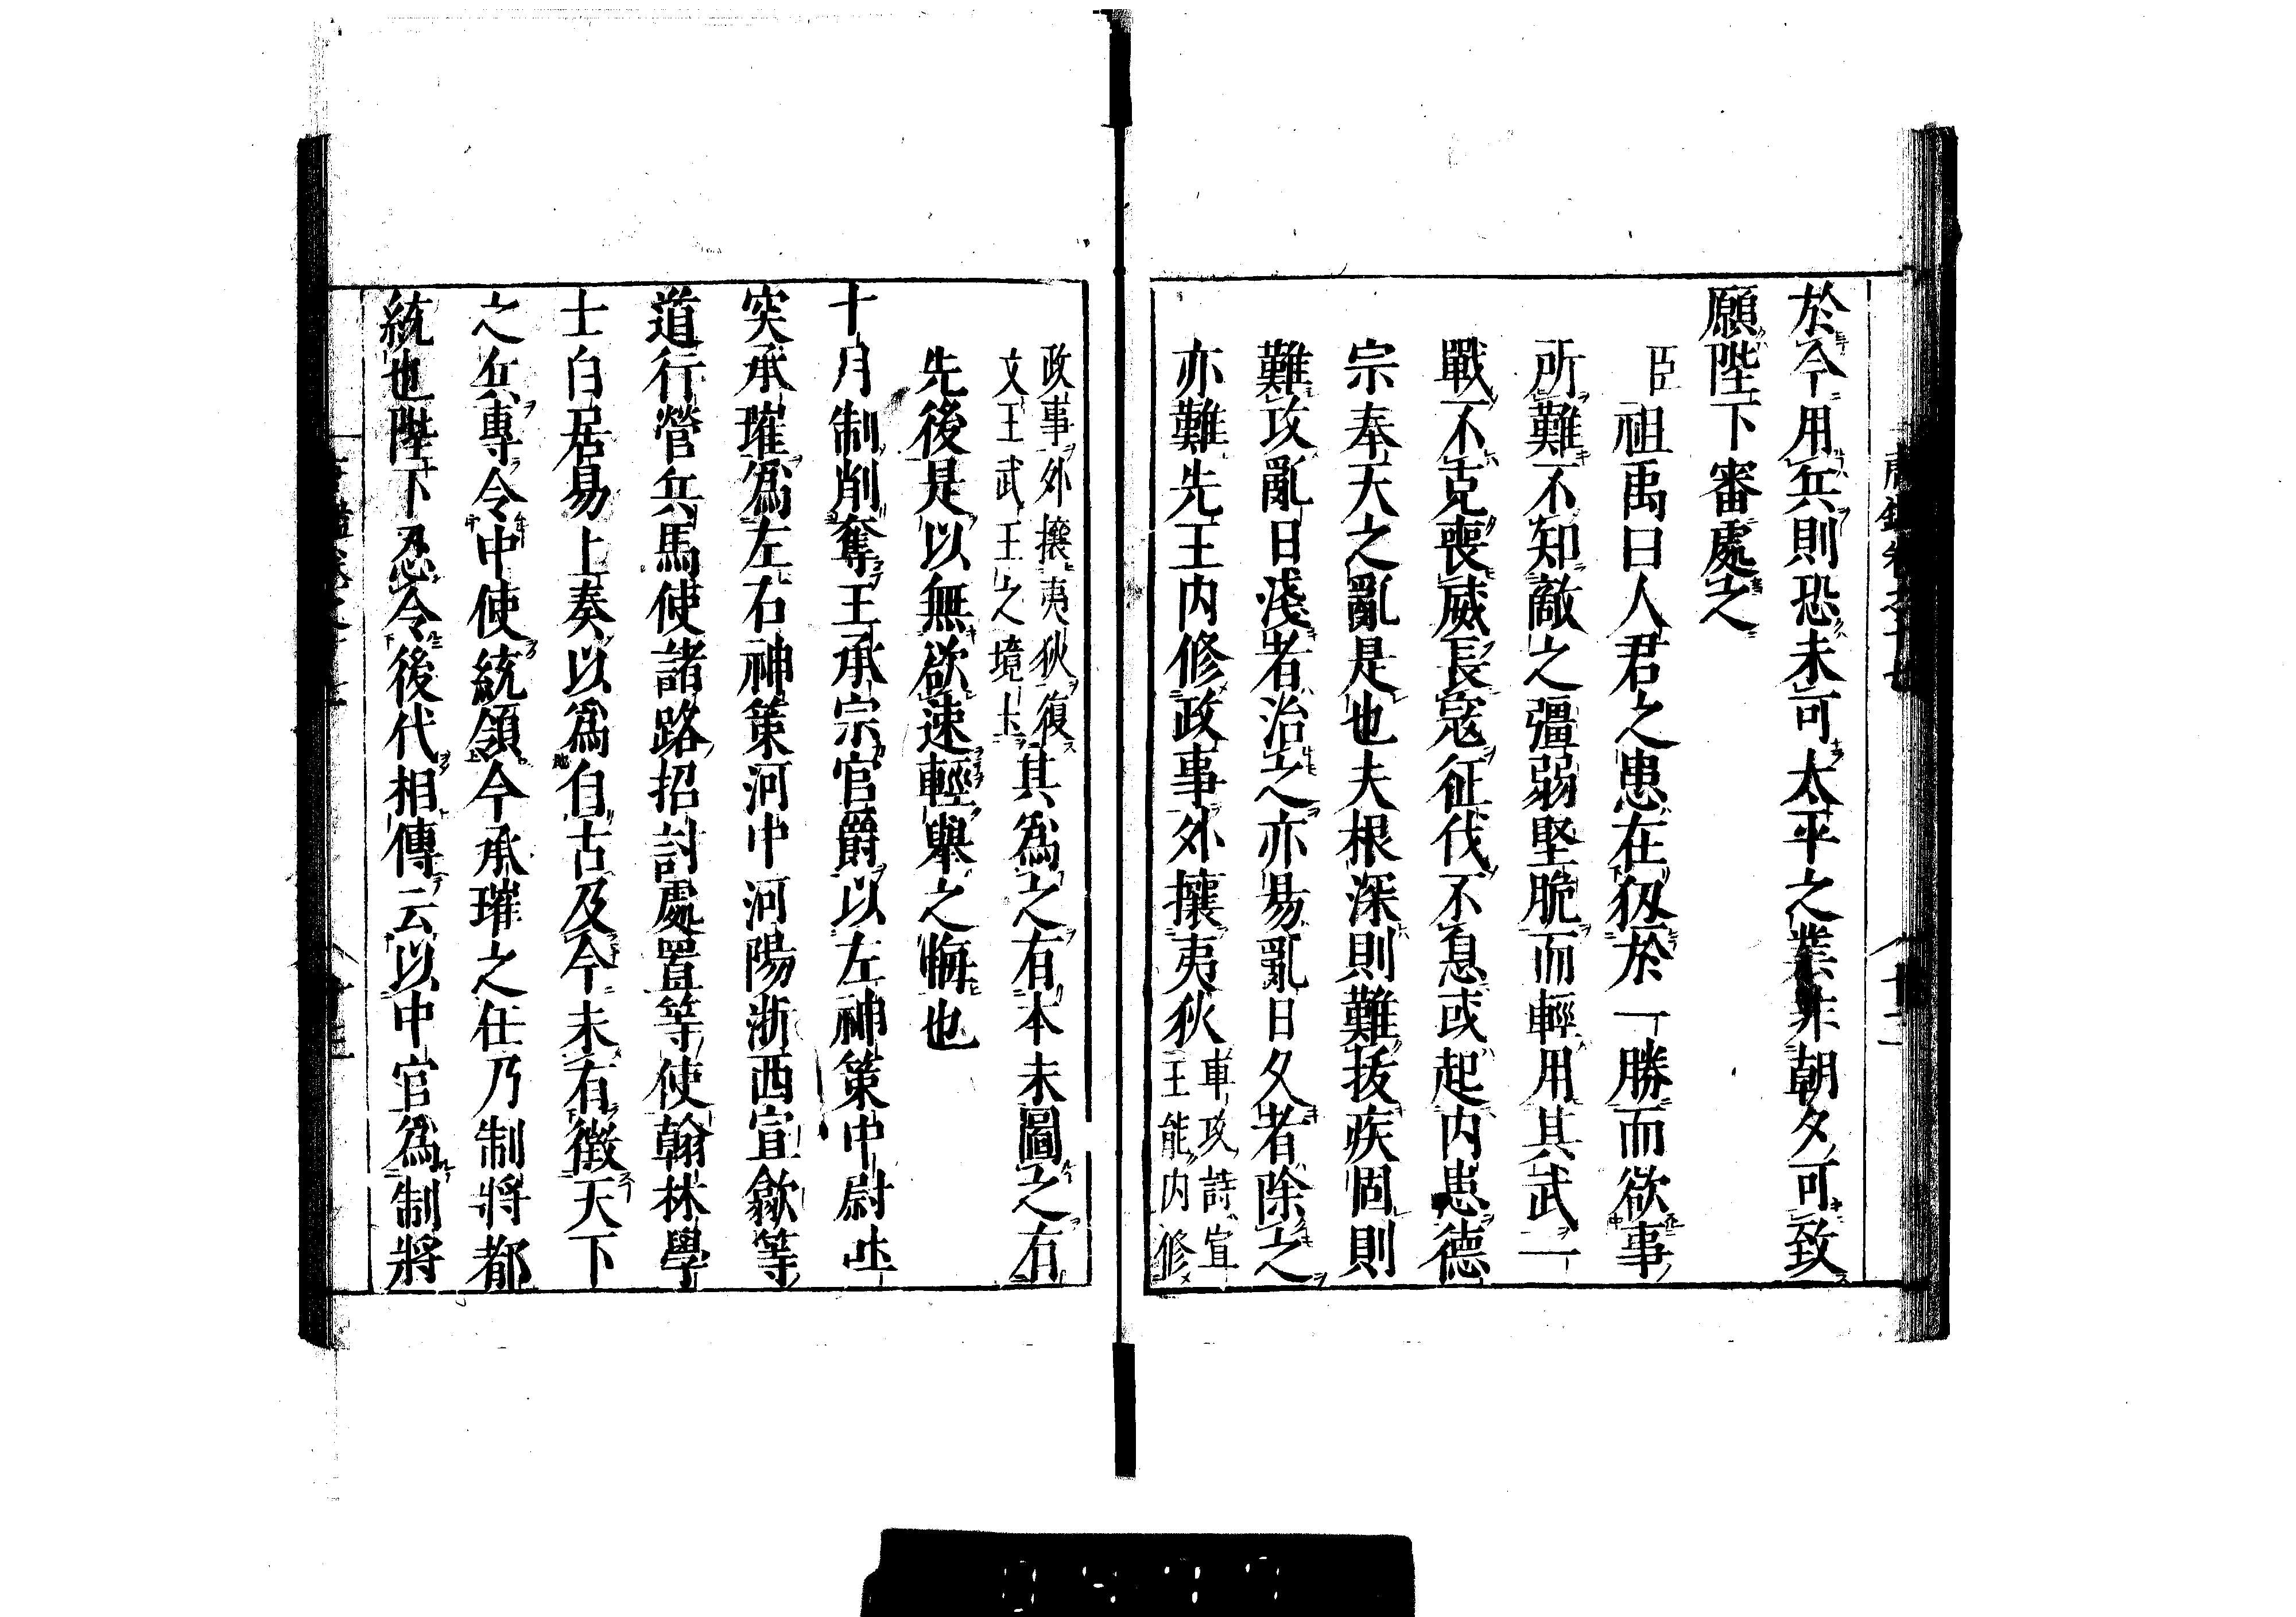 於今用兵則恐未可太平之業非朝夕可致
願陛下審處之
臣祖禹曰人君之患在狃於一勝而欲事
所難不知敵之彊弱堅脆而輕用其武一
戰不克喪威長寇征伐不息或起内患德
宗奉天之亂是也夫根深則難拔疾固則
難攻亂日淺者治之亦易亂日久者除之
亦難先王内修政事外攘夷狄車攻詩宣
王能内修
政事外攘夷狄復
文王武王之境土其為之有本末圖之有
先後是以無欲速輕舉之悔也
十月制削奪王承宗官爵以左神策中尉吐
突承璀爲左右神策河中河陽浙西宣歙等
道行營兵馬使諸路招討處置等使翰林學
士白居易上奏以爲自古及今未有徵天下
之兵專令中使統領今承璀之任乃制將都
統也陛下忍令後代相傳云以中官爲制將